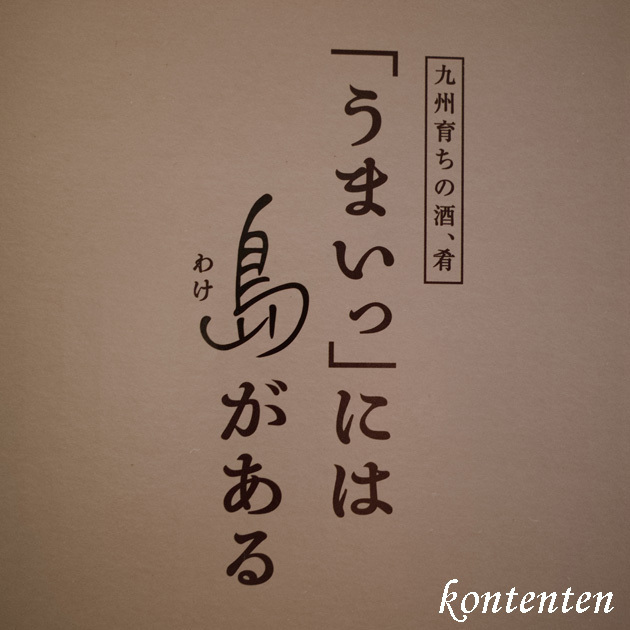 九州育ちの酒、肴
「うまいっ」には
島がある
わけ
kontenten